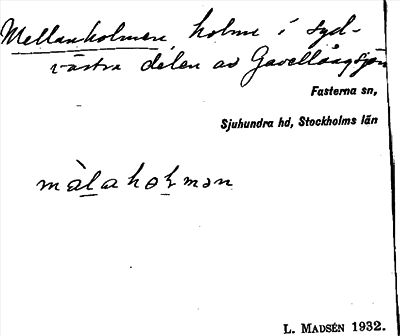 Mellanholmen, holme i syd-
västra delen av Gavellångsjön
Fasterna sn,
Sjuhundra hd, Stockholms län
màlahoḻmən
L. MADSÉN 1932.